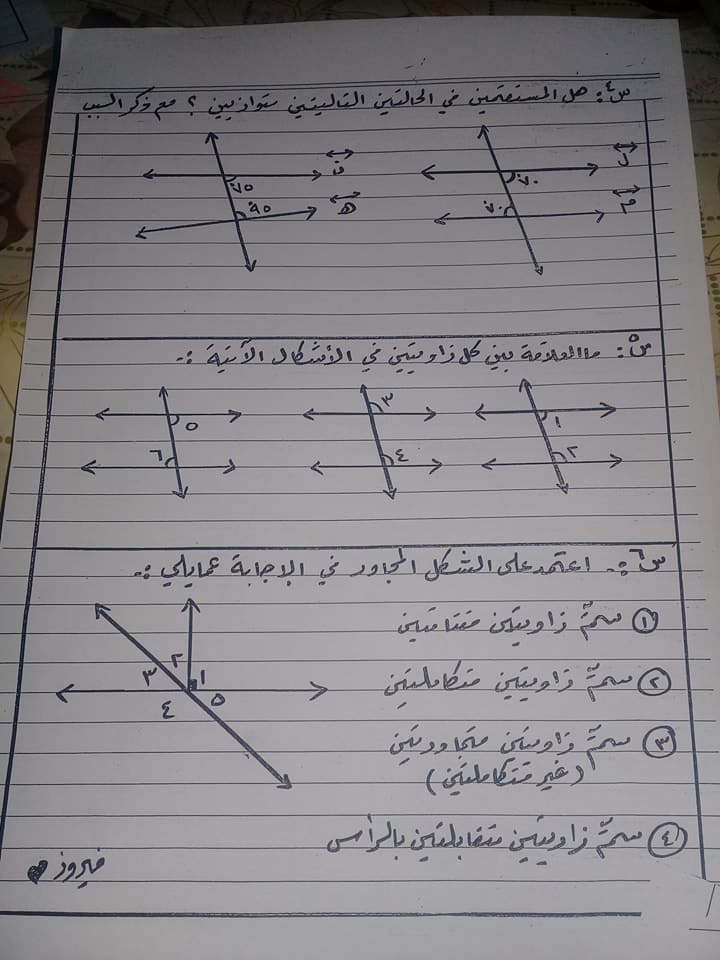 س٤: هل المستقيمين في الحالتين التاليتين متوازيين ؟ مع ذكر السبب
ل ٧٠
م ٧٠
ن ٧٥
هـ ٩٥
س٥: ما العلاقة بين كل زاويتين في الأشكال الآتية :-
١ ٢
٣ ٤
٥ ٦
س٦ :- اعتمد على الشكل المجاور في الإجابة عمايلي :-
١ سمّ زاويتين متتامتين
٢ سمّ زاويتين متكاملتين
٣ سمّ زاويتين متجاورتين
(غير متكاملتين)
٤ سمّ زاويتين متقابلتين بالرأس
١ ٢ ٣ ٤ ٥
فيروز